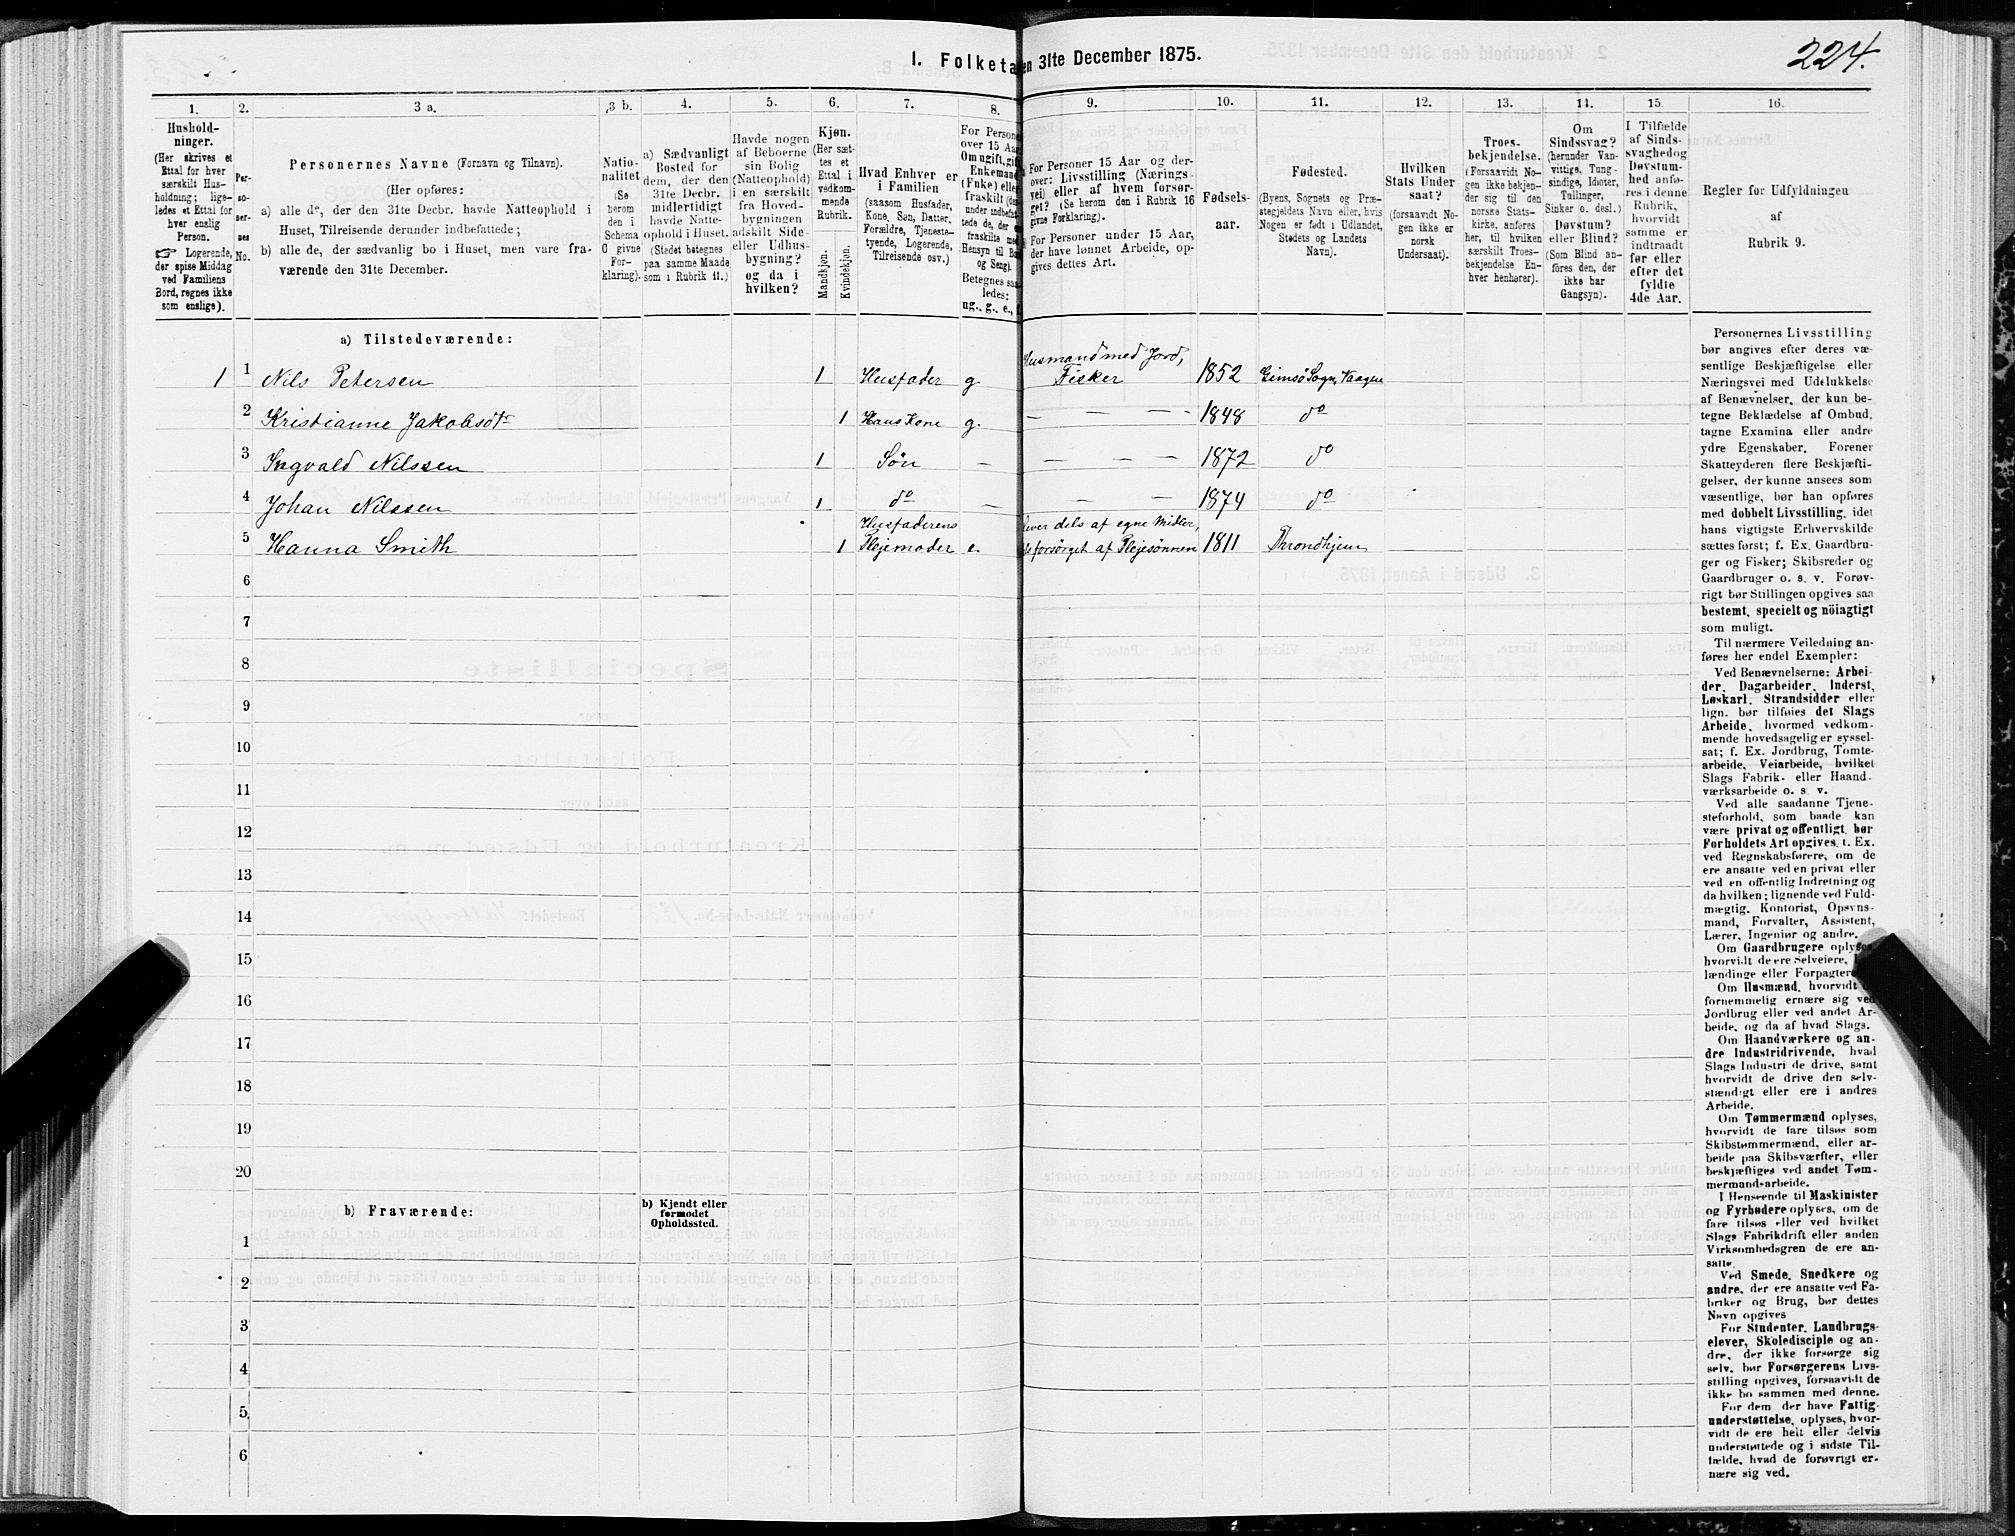 224.
1. Folketa en 31te December 1875.
1. 2. 3 a. 3 b. 4. 5. 6. 7. 8. 9. 10. 11. 12. 13. 14. 15. 16.
Hushold-
ninger.
(Her skrives et
Ettal for hver
særskilt Hus-
holdning; lige-
ledes et Ettal for
hver enslig
Person.
☞ Logerende,
der spise Middag
ved Familiens
Bord, regnes ikke
som enslige).
Per-
so-
ner-
nes
No.
Personernes Navne (Fornavn og Tilnavn).
(Her opføres:
a) alle de, der den 31te Decbr. havde Natteophold i
Huset, Tilreisende derunder indbefattede;
b) alle de, der sædvanlig bo i Huset, men vare fra-
værende den 31te December.
Natio-
nalitet
(Se
herom
den i
Schema
O givne
For-
klaring).
a) Sædvanligt
Bosted for
dem, der den
31te Decbr.
midlertidigt
havde Natte-
ophold i Huset.
(Stedet betegnes
paa samme Maade
som i Rubrik 11.)
Havde nogen
af Beboerne
sin Bolig
(Natteophold)
i en særskilt
fra Hoved-
bygningen
adskilt Side-
eller Udhus-
bygning?
og da i
hvilken?
Kjøn.
(Her sæt-
tes et
Ettal i
vedkom-
mende
Rubrik.
Mandkjøn.
Kvindekjøn.
Hvad Enhver er
i Familien
(saasom Husfader,
Kone, Søn, Datter,
Forældre, Tjeneste-
tyende, Logerende,
Tilreisende osv.)
For Persone
over 15 Aar
Om ugift, gift
Enkemand
(Enke) elle
fraskilt (der
under indbefat-
tede de, der er
fraskilte med
Hensyn til Bo
og Seng).
Betegnes saa
ledes:
ug., g., e., f.
For Personer 15 Aar og der-
over: Livsstilling (Nærings-
vei) eller af hvem forsør-
get? (Se herom den i Rubrik 16
givne Forklaring).
For Personer under 15 Aar,
der have lønnet Arbeide, op-
gives dettes Art.
Fødsels-
aar.
Fødested.
(Byens, Sognets og Præ-
stegjeldets Navn eller, hvis
Nogen er født i Udlandet,
Stedets og Landets
Navn).
Hvilken
Stats Under
saat?
(forsaavidt No-
gen ikke er
norsk
Undersaat).
Troes-
bekjendelse.
(Forsaavidt No-
gen ikke bekjen-
der sig til den
norske Stats-
kirke, anføres
her, til hvilken
særskilt Troes-
bekjendelse En-
hver henhører).
Om
Sindssvag?
(herunder Van-
vittige, Tung-
sindige, Idioter,
Tullinger,
Sinker o. desl.)
Døvstum?
eller Blind?
(Som Blind an-
føres den, der
ikke har
Gangsyn).
I Tilfælde
af Sinds-
svaghed og
Døvstum-
hed anfø-
res i denne
Rubrik,
hvorvidt
samme er
indtraadt
før eller
efter det
fyldte
4de Aar.
Regler for Udfyldningen
af
Rubrik 9.
a) Tilstedeværende:
Husmand med Jord,
1 1 Nils Petersen 1 Husfader g. Fisker 1852 Gimsö Sogn, Vaagen
2 Kristianne Jakobsdtr 1 Hans Kone g. — — — 1848 do
3 Ingvald Nilssen 1 Søn — — — — 1872 do
4 Johan Nilssen 1 do — — — 1874 do
Husfaderens lever dels af egne Midler,
5 Hanna Smith 1 Plejemoder e. forsörget af Plejesönnen 1811 Throndhjem
6
7
8
9
10
11
12
13
14
15
16
17
18
19
20
b) Fraværende:
b) Kjendt eller
formodet
Opholdssted.
1
2
3
4
5
6
Personernes Livsstilling
bør angives efter deres væ-
sentlige Beskjæftigelse eller
Næringsvei med Udelukkelse
af Benævnelser, der kun be-
tegne Beklædelse af Ombud,
tagne Examina eller andre
ydre Egenskaber. Forener
Skatteyderen flere Beskjæfti-
gelser, der kunne ansees som
væsentlige, bør han opføres
med dobbelt Livsstilling, idet
hans vigtigste Erhvervskilde
sættes først; f. Ex. Gaardbru-
ger og Fisker; Skibsreder og
Gaardbruger o. s. v. Forøv-
rigt bør Stillingen opgives saa
bestemt, specielt og nöiagtigt
som muligt.
Til nærmere Veiledning an-
føres her endel Exempler:
Ved Benævnelserne: Arbei-
der, Dagarbeider, Inderst,
Løskarl, Strandsidder eller
lign. bør tilføies det Slags
Arbeide, hvormed vedkom-
mende hovedsagelig er syssel-
sat; f. Ex. Jordbrug, Tomte-
arbeide, Veiarbeide, hvilket
Slags Fabrik- eller Haand-
værksarbeide o. s. v.
Ved alle saadanne Tjene-
steforhold, som baade kan
være privat og offentligt, bør
Forholdets Art opgives, t. Ex.
ved Regnskabsførere, om de
ere ansatte ved en privat eller
ved en offentlig Indretning og
da hvilken; lignende ved Fuld-
mægtig, Kontorist, Opsyns-
mand, Forvalter, Assistent,
Lærer, Ingeniør og andre.
Om Gaardbrugere oplyses,
hvorvidt de ere Selveiere,
lændinge eller Forpagtere
Om Husmænd, hvorvidt
fornemmelig ernære sig ved
Jordbrug eller ved andet Ar-
beide, og da af hvad Slags.
Om Haandværkere og an-
dre Industridrivende, hvad
Slags Industri de drive, samt
hvorvidt de drive den selv-
stændigt eller ere i andres
Arbeide.
Om Tømmermænd oplyses,
hvorvidt de fare tilsøs som
Skibstømmermænd, eller ar-
beide paa Skibsværfter, eller
beskjæftiges ved andet Tøm-
mermand-arbeide.
I Henseende til Maskinister
og Fyrbødere oplyses, om de
fare tilsøs eller ved hvilket
Slags Fabrikdrift eller anden
Virksomhedsgren de ere an-
satte.
Ved Smede, Snedkere og
andre, der ere ansatte ved Fa-
briker og Brug, bør dettes
Navn opgives
For Studenter, Landbrugs-
elever, Skoledisciple og an-
dre, der ikke forsørge sig
selv, bør Forsørgerens Livs-
stilling opgives, forsaavidt de
ikke bo sammen med denne.
For dem, der have Fattig-
understøttelse, oplyses, hvor-
vidt de ere helt eller delvis
understøttede og i sidste Til-
fælde, hvad de forøvrigt er-
nære sig ved.